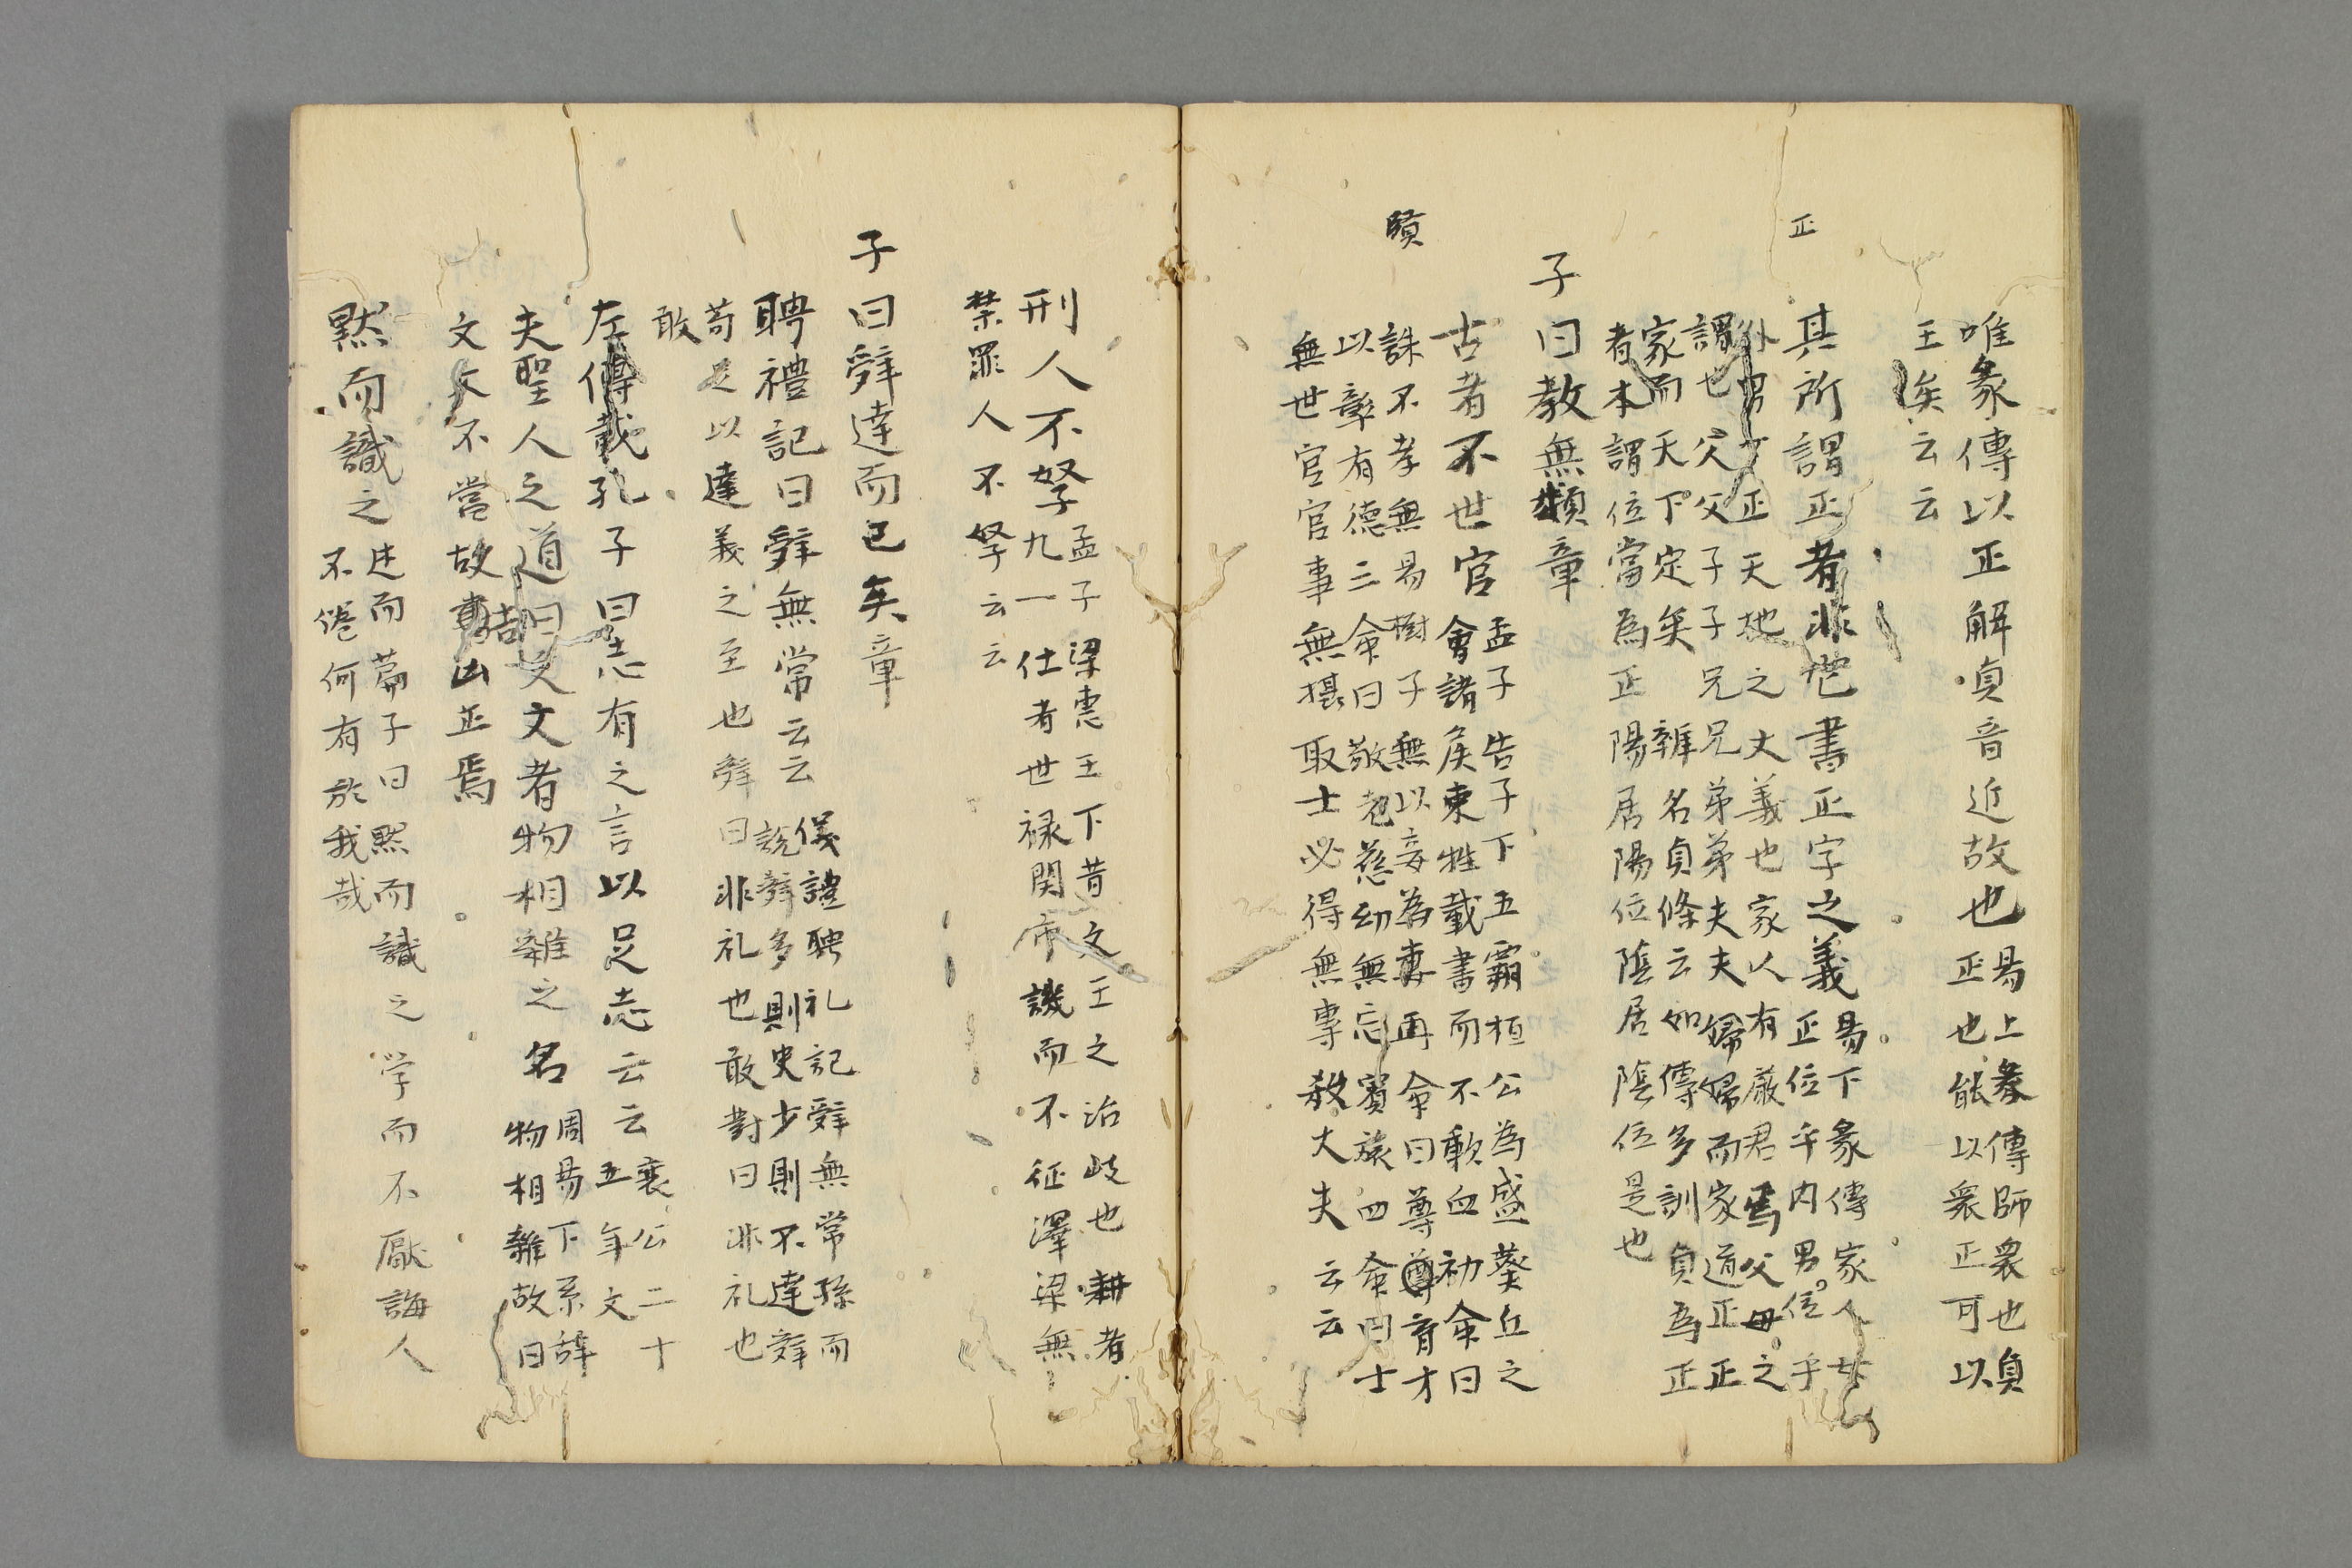 唯彖傳以正解貞音近故也
易上彖傳師衆也貞
正也能以衆正可以
王矣云云
正
其所謂正者非也書正字之義
易下彖傳家人女
正位乎內男位乎
外男女正天地之大義也家人有嚴君焉父母之
謂也父父子子兄兄弟弟夫夫婦婦而家道正正
家而天下定矣 辨名貞條云如傳多訓貞為正
者本謂位當為正陽居陽位陰居陰位是也
子曰教無類章
古者不世官
孟子告子下五霸桓公為盛葵丘之
會諸侯束牲載書而不歃血初命曰
誅不孝無易樹子無以妾為妻再命曰尊尊育才
賢
以彰有德三命曰敬老慈幼無忘賓旅四命曰士
無世官官事無摂取士必得無專殺大夫云云
刑人不孥
孟子梁惠王下昔文王之治岐也耕者
九一仕者世禄関市譏而不征澤梁無
禁罪人不孥云云
子曰辤達而已矣章
聘禮記曰辤無常云云
儀禮聘礼記辤無常孫而
說辤多則史少則不達辤
苟足以達義之至也辤曰非礼也敢對曰非礼也
敢
左傳載孔子曰志有之言以足志云云
襄公二十
五年文
夫聖人之道曰文文者物相雜之名
周易下系辞
物相雜故曰
文文不當故吉凶生焉
黙而識之
述而篇子曰黙而識之学而不厭誨人
不倦何有於我哉